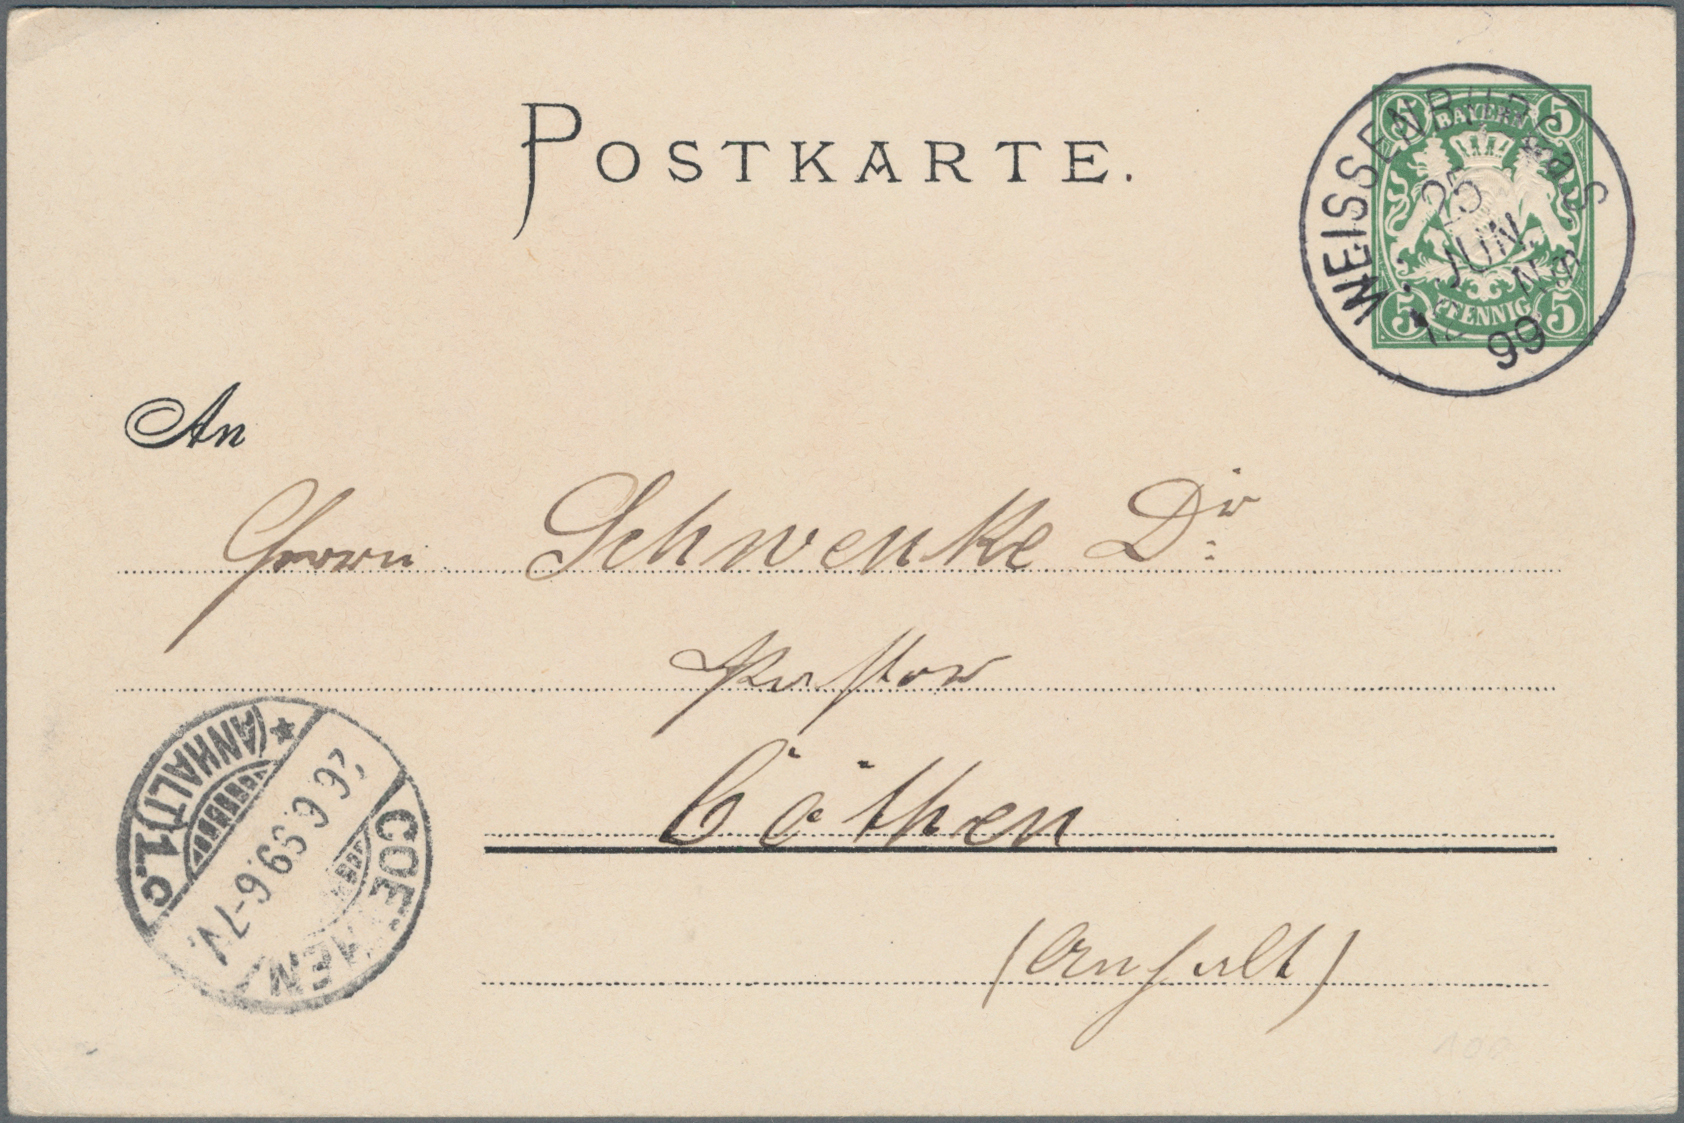 POSTKARTE.
5 BAYERN 5
5 PFENNIG 5
WEISSENBURG a. S.
25
JUN.
Nm
99
An
Herrn Schwenke Dr:
Pastor
Cöthen
(Anhalt)
COETHEN
(ANHALT) 1.c
26.6.99.6-7V.